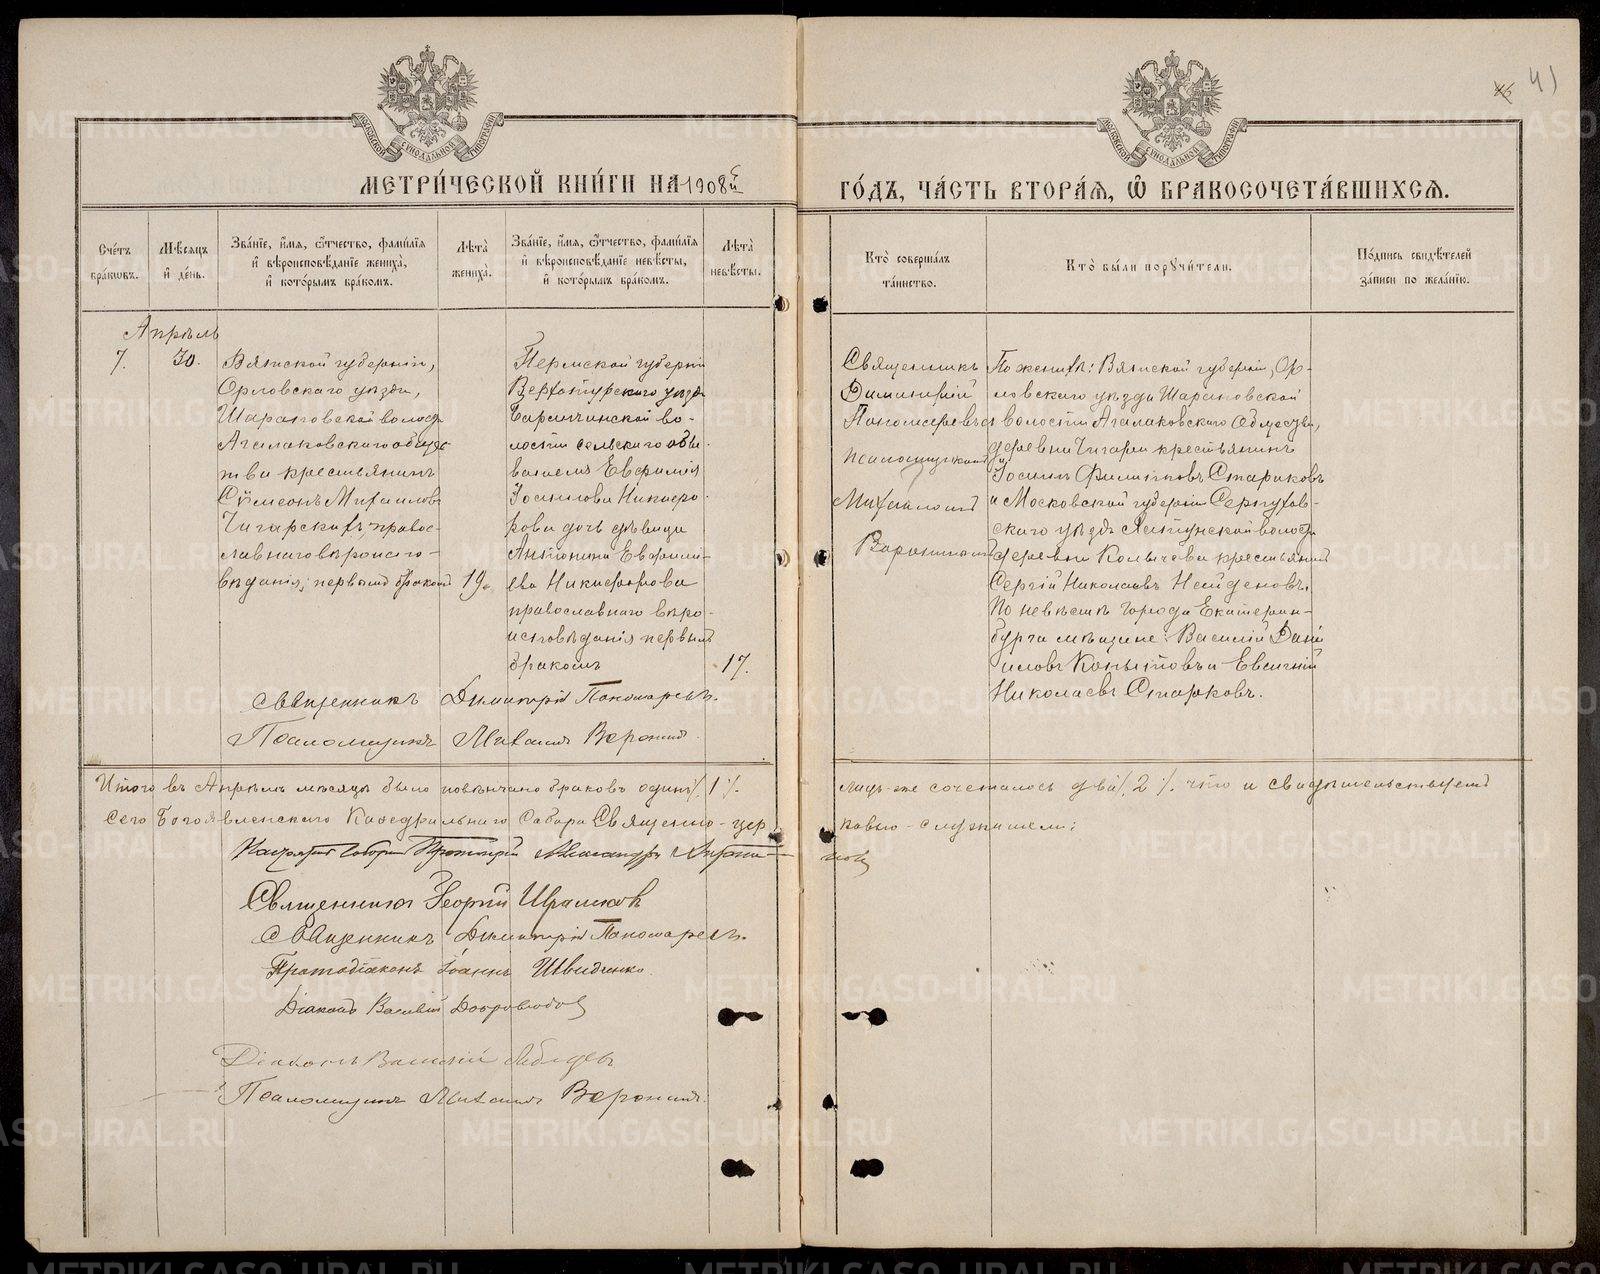 41
МЕТРИ́ЧЕСКОЙ КНИ́ГИ НА 1908й
ГО́ДЪ, ЧА́СТЬ ВТОРА́Я, Ѿ БРАКОСОЧЕТА́ВШИХСЯ.
Сче́тъ бра́ковъ.
Мѣ́сяцъ и де́нь.
Зва́нїе, и́мя, ѻ́тчество, фами́лїя и вѣроисповѣ́данїе жениха̀, и кото́рымъ бра́комъ.
Лѣ́та жениха̀.
Зва́нїе, и́мя, ѻ́тчество, фами́лїя и вѣроисповѣ́данїе невѣ́сты, и кото́рымъ бра́комъ.
Лѣ́та невѣ́сты.
Кто̀ соверша́лъ та́инство.
Кто̀ бы́ли пору́чители.
По́дпись свидѣ́телей за́писи по жела́нїю.
Апрѣль
7.
30.
Вятской губерніи,
Орловскаго уѣзда,
Шарановской волос.
Агалаковскаго общес-
тва крестьянинъ
Сѵмеонъ Михаиловъ
Чигарскихъ, правос-
лавнаго вѣроиспо-
вѣданія, первымъ бракомъ
19.
Пермской губерніи
Верхотурскаго уѣзда
Баранчинской во-
лости сельскаго обы-
вателя Евфимія
Іоаннова Никифо-
рова дочь дѣвица
Антонина Евфимі-
ева Никифорова
православнаго вѣро-
исповѣданія первымъ
бракомъ
17.
Священникъ
Димитрій
Пономаревъ съ
псаломщикомъ
Михаиломъ
Ворониномъ
По женихѣ: Вятской губерніи, Ор-
ловскаго уѣзда Шарановской
волости Агалаковскаго Общества,
деревни Чигари крестьянинъ
Іосифъ Филипповъ Стариковъ
и Московской губерніи Серпухов-
скаго уѣзда волости
деревни Колычева крестьянинъ
Сергій Николаевъ Найденовъ.
По невѣстѣ города Екатерин-
бурга мѣщане: Василій Дані-
иловъ Копытовъ и Евгеній
Николаевъ Старковъ.
Священникъ Димитрій Пономаревъ.
Псаломщикъ Михаилъ Воронинъ.
Итого въ Апрѣлѣ мѣсяцѣ было повѣнчано браковъ одинъ /.1/.
лицъ-же сочеталось два /.2/. что и свидѣтельствуемъ
сего Богоявленскаго Каѳедральнаго Собора Священно-цер-
ковно-служители:
Настоятель Собора Протоіерей Александръ
Священникъ Георгій
Священникъ Димитрій Пономаревъ.
Протодіаконъ Іоаннъ Швиденко.
Діаконъ Василій Добролюбовъ
Діаконъ Василій Лебедевъ
Псаломщикъ Михаилъ Воронинъ.